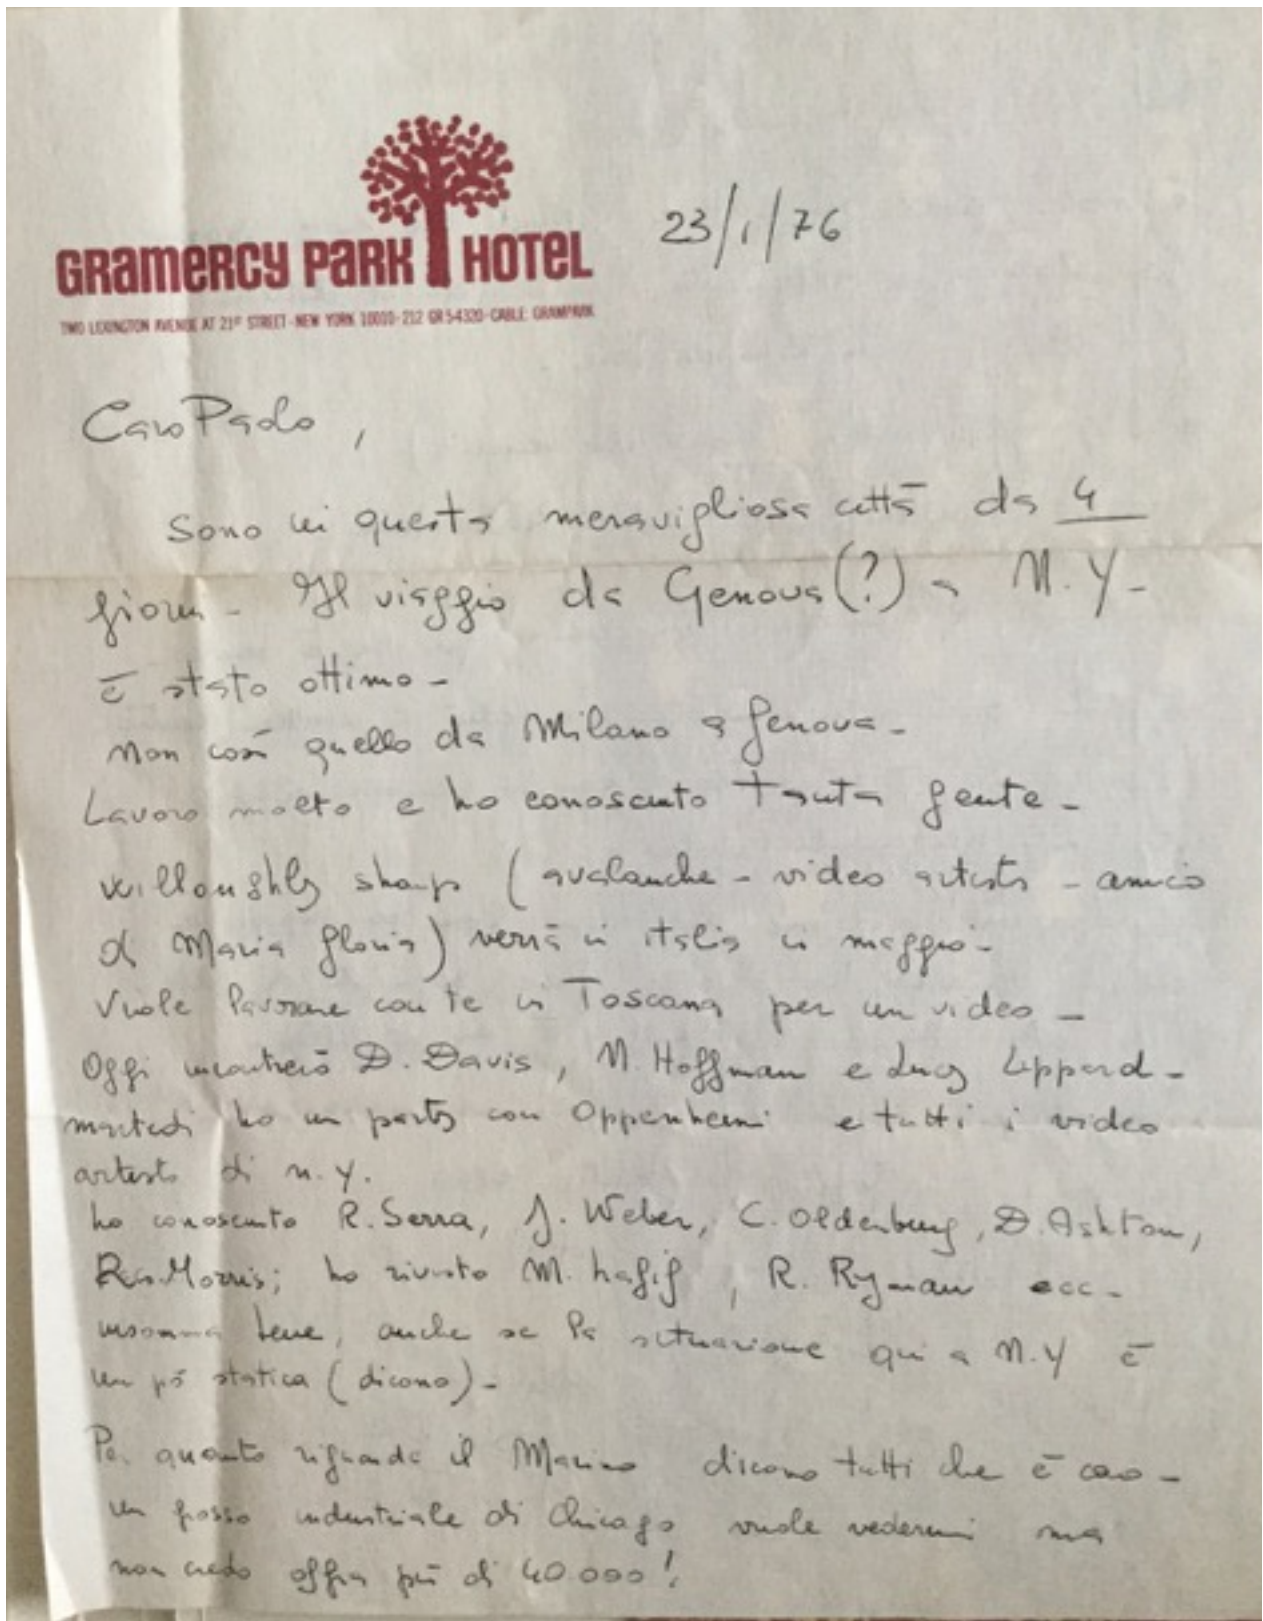 GRAMERCY PARK HOTEL
TWO LEXINGTON AVENUE AT 21ST STREET - NEW YORK 10010 - 212 GR 5-4320 - CABLE: GRAMPARK
23/1/76
Caro Paolo,
Sono in questa meravigliosa città da 4
giorni - Il viaggio da Genova (?) a N.Y -
è stato ottimo -
Non così quello da Milano a Genova -
Lavoro molto e ho conosciuto tanta gente -
Willoughby Sharp (avalanche - video artista - amico
di Maria Gloria) verrà in italia in maggio -
Vuole lavorare con te in Toscana per un video -
Oggi incontrerò D. Davis, N. Hoffman e Lucy Lippard -
martedi ho un party con Oppenheim e tutti i video
artisti di N.Y.
ho conosciuto R. Serra, J. Weber, C. Oldenburg, D. Ashton,
R. Morris; ho rivisto M. Hafif, R. Ryman ecc -
insomma bene, anche se la situazione qui a N.Y è
un pò statica (dicono) -
Per quanto riguarda il Marino dicono tutti che è caro -
un grosso industriale di Chicago vuole vedermi ma
non credo offra più di 40.000!